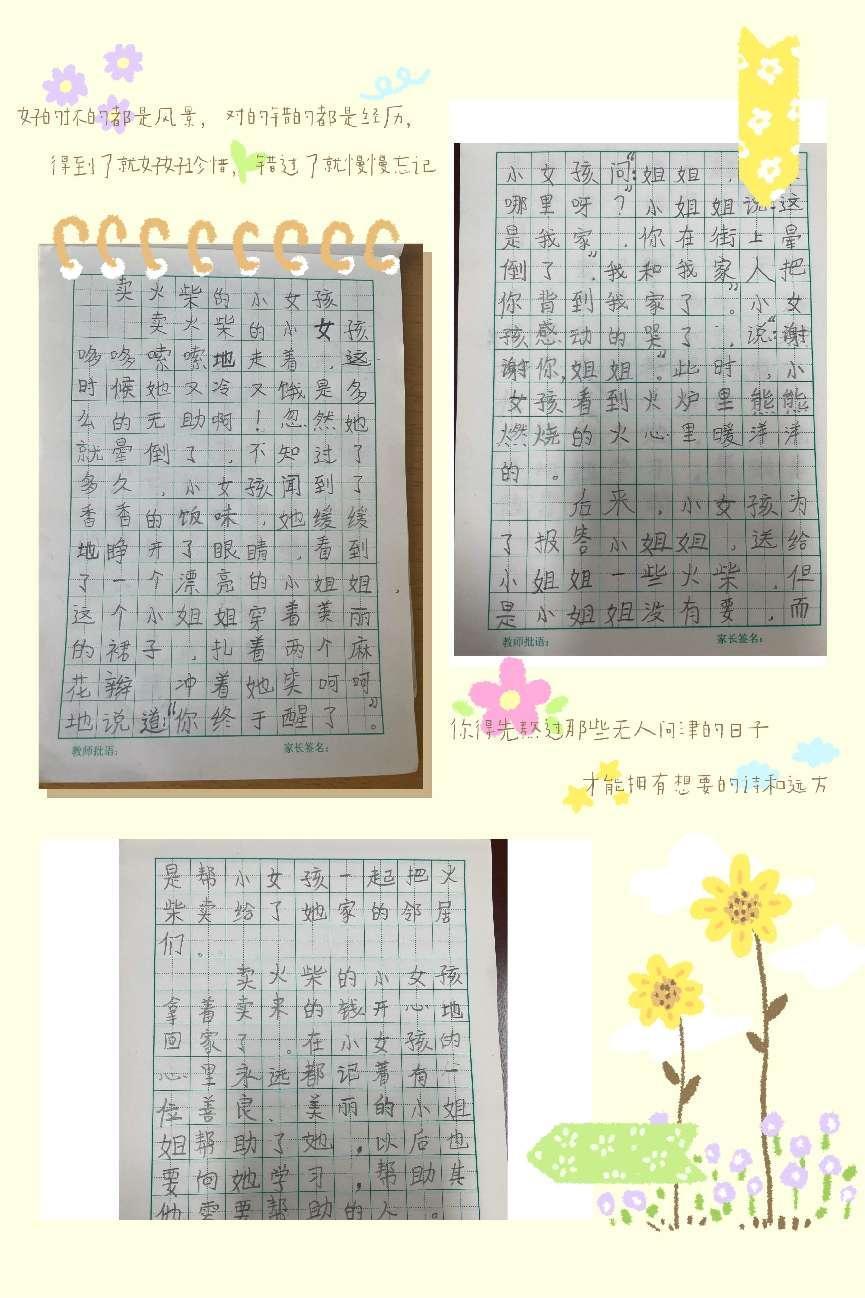 好的坏的都是风景，对的错的都是经历，
得到了就好好珍惜，错过了就慢慢忘记
卖火柴的小女孩
卖火柴的小女孩
哆哆嗦嗦地走着，这
时候她又冷又饿是多
么的无助啊！忽然她
就晕倒了，不知过了
多久，小女孩闻到了
香香的饭味，她缓缓
地睁开了眼睛，看到
了一个漂亮的小姐姐，
这个小姐姐穿着美丽
的裙子，扎着两个麻
花辫，冲着她笑呵呵
地说道：“你终于醒了”。
教师批语： 家长签名：
小女孩问：“姐姐，
哪里呀？”小姐姐说：“这
是我家，你在街上晕
倒了”，我和我家人把
你背到我家了。”小女
孩感动的哭了，说：“谢
谢你，姐姐。”此时，小
女孩看到火炉里熊熊
燃烧的火心里暖洋洋
的。
后来，小女孩为
了报答小姐姐，送给
小姐姐一些火柴，但
是小姐姐没有要，而
教师批语： 家长签名：
你得先熬过那些无人问津的日子
才能拥有想要的诗和远方
是帮小女孩一起把火
柴卖给了她家的邻居
们。
卖火柴的小女孩
拿着卖来的钱开心地
回家了。在小女孩的
心里永远都记着有一
位善良、美丽的小姐
姐帮助了她，以后也
要向她学习，帮助其
他需要帮助的人。